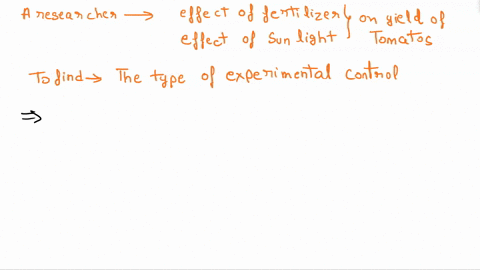 A researcher → effect of fertilizer } on yield of
effect of Sun light } Tomatos
To find → The type of experimental control
⇒